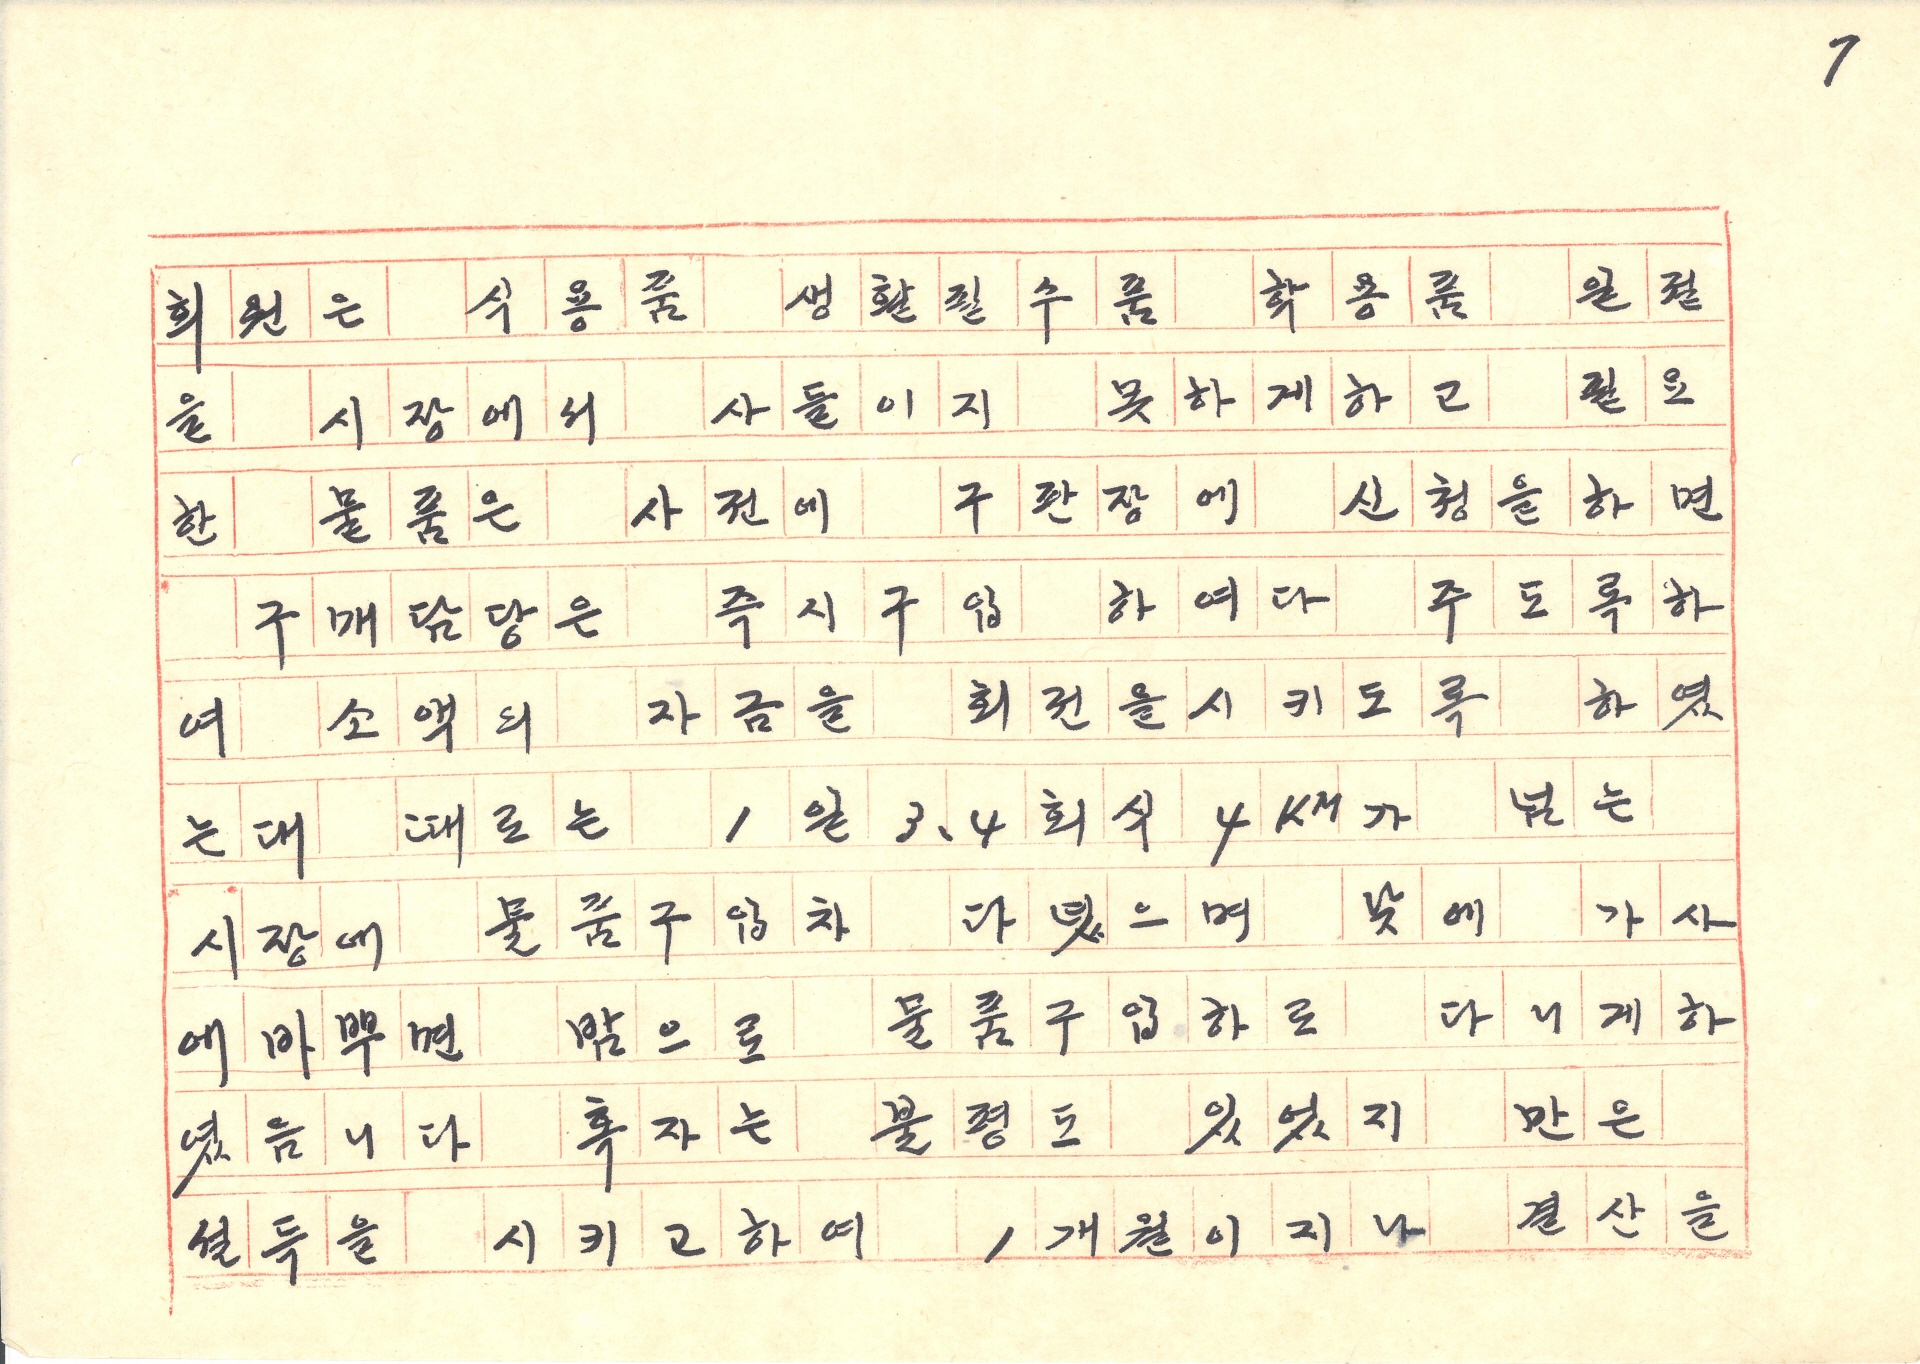 7
회원은 식용품 생활필수품 학용품 일절
을 시장에서 사들이지 못하게하고 필요
한 물품은 사전에 구판장에 신청을하면
구매담당은 즉시구입 하여다 주도록하
여 소액의 자금을 회전을시키도록 하였
는대 때로는 1일3、4회식4KM가 넘는
시장에 물품구입차 다녔으며 낮에 가사
에바뿌면 밤으로 물품구입하로 다니게하
였음니다 혹자는 불평도 있었지 만은
설득을 시키고하여 1개월이지나 결산을